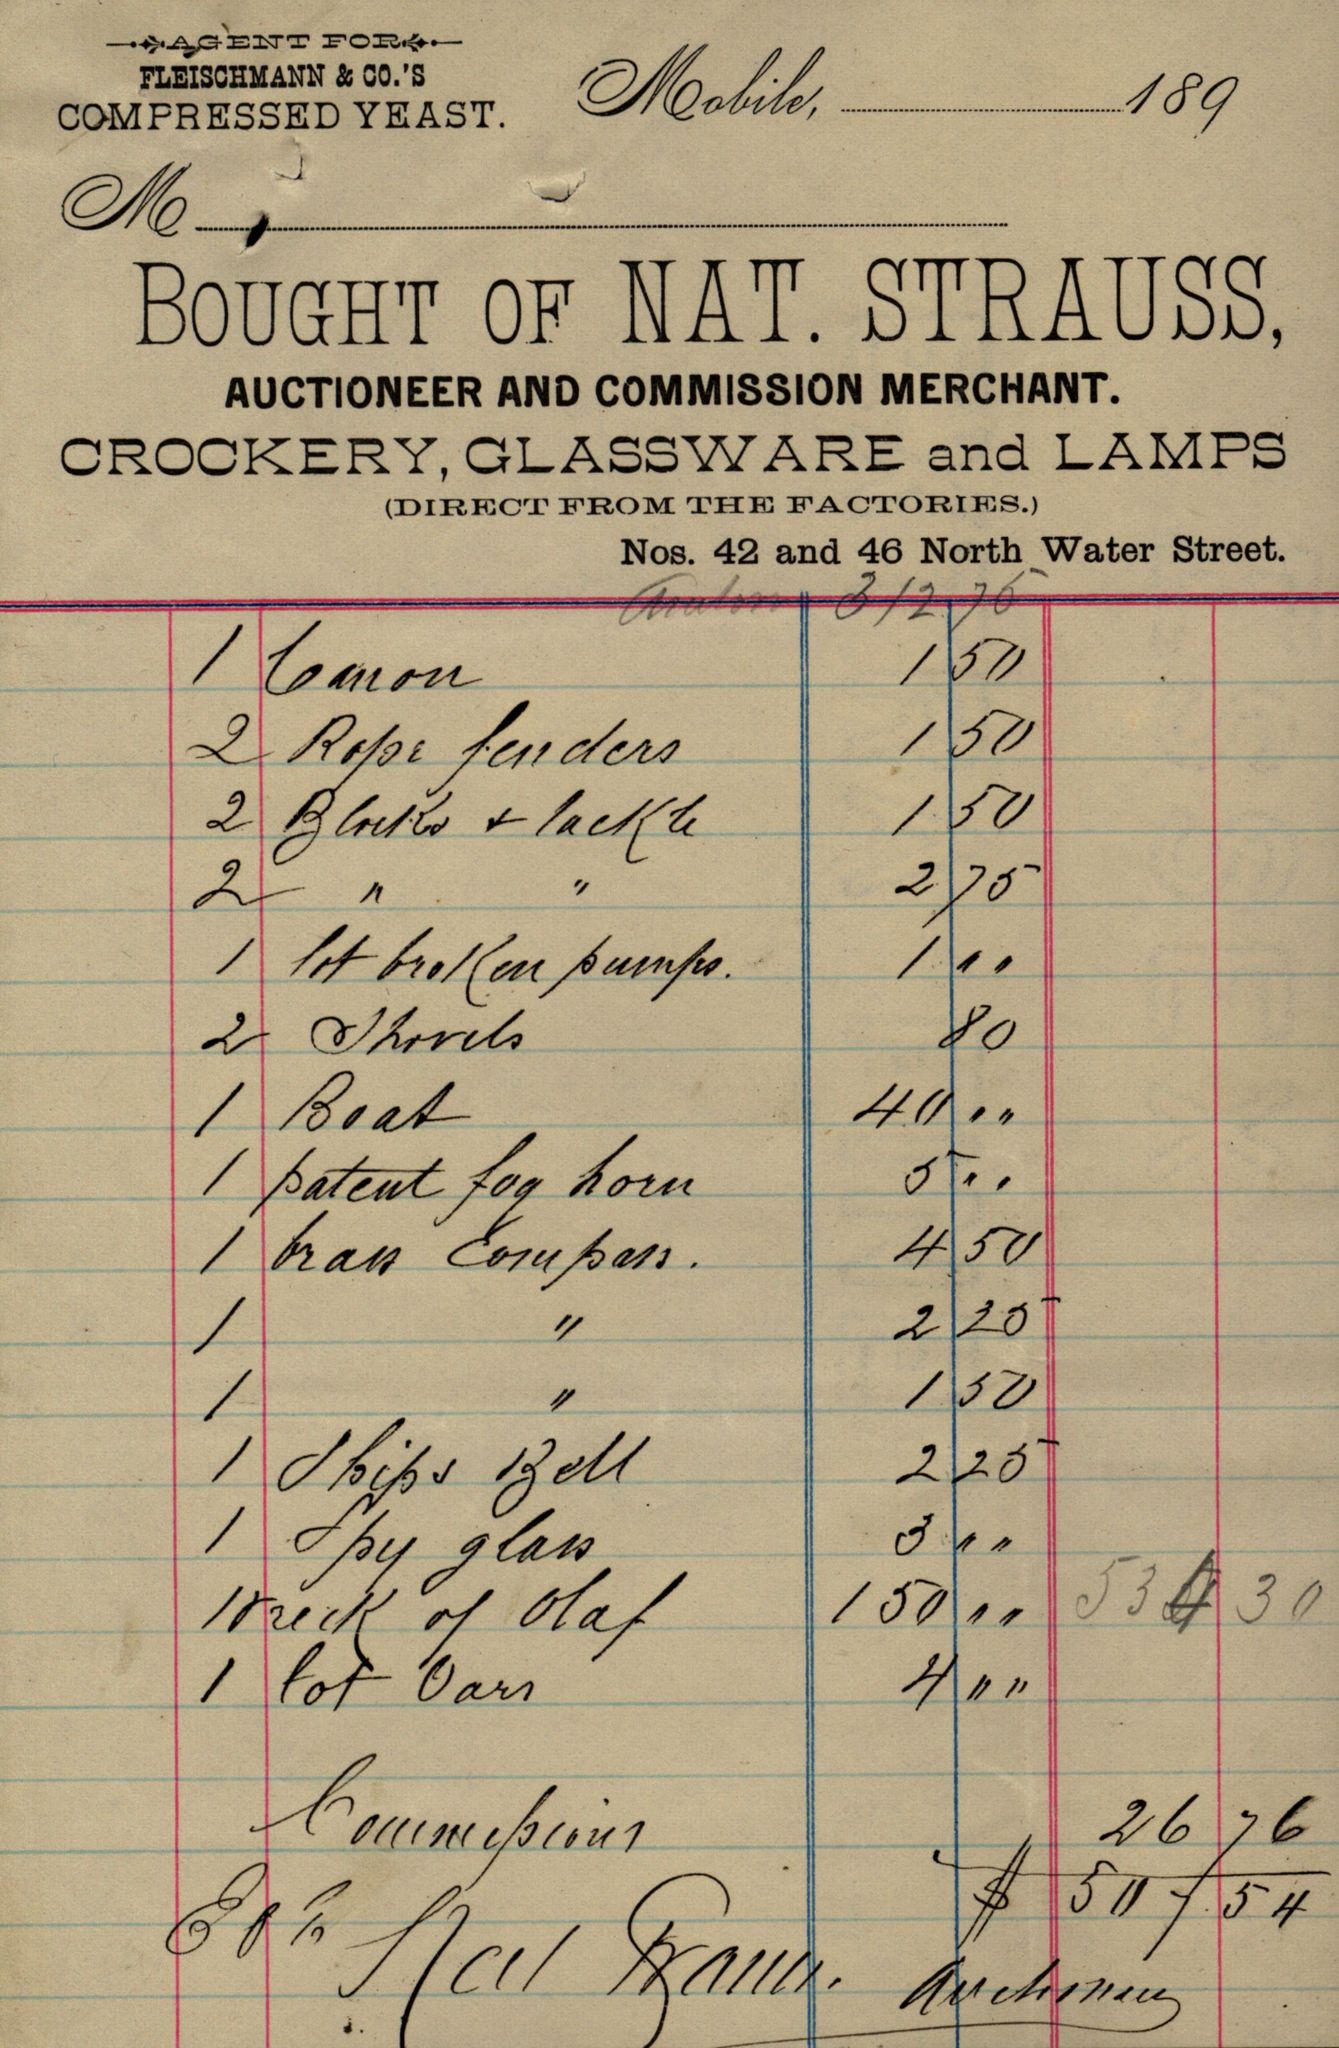 AGENT FOR
FLEISCHMANN & CO.'S
COMPRESSED YEAST.
Mobile, 189
M
BOUGHT OF NAT. STRAUSS,
AUCTIONEER AND COMMISSION MERCHANT.
CROCKERY, GLASSWARE and LAMPS
(DIRECT FROM THE FACTORIES.)
Nos. 42 and 46 North Water Street.
312 75
1 Canon 1 50
2 Rope fenders 1 50
2 Blocks + tackle 1 50
2 " " 2 75
1 lot broken pumps. 1 ""
2 Shovels 80
1 Boat 40 ""
1 patent fog horn 5 ""
1 brass Compass. 4 50
1 " 2 25
1 " 1 50
1 Ships Bell 2 25
1 Spy glass 3 ""
Wreck of Olaf 150 "" 534 30
1 lot Oars 4 ""
Commissions 26 76
$ 507.54
E & O E
Nat Strauss. Auctioneer